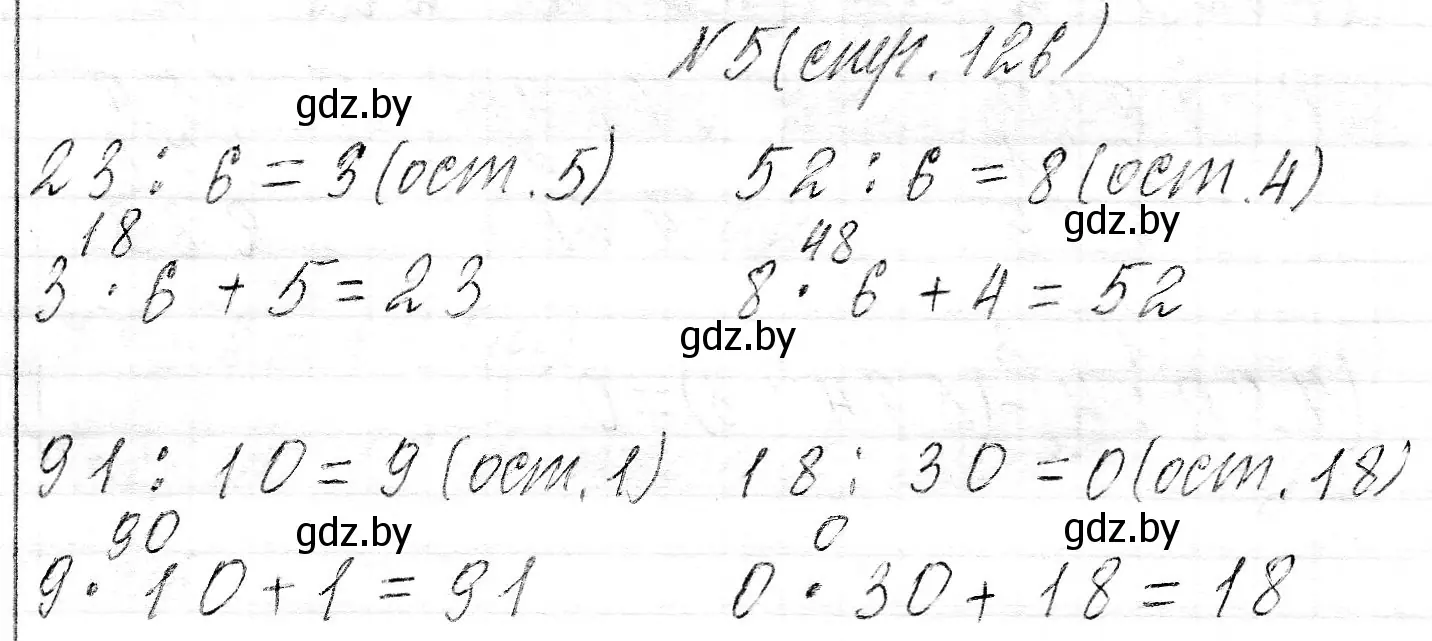 N 5 (стр. 126)
gdz.by
23 : 6 = 3 (ост. 5) 52 : 6 = 8 (ост. 4)
gdz.by
18 48
3 · 6 + 5 = 23 8 · 6 + 4 = 52
gdz.by
91 : 10 = 9 (ост. 1) 18 : 30 = 0 (ост. 18)
90 gdz.by 0 gdz.by
9 · 10 + 1 = 91 0 · 30 + 18 = 18